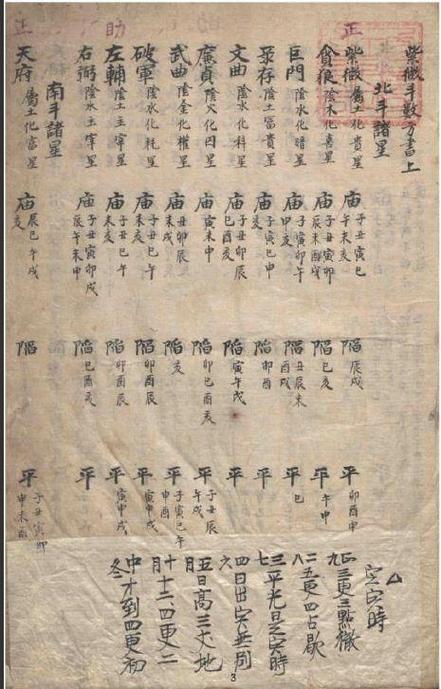 紫微斗數書上
北斗諸星
正
紫微 屬土化貴星 庙 子丑寅巳午未亥 陷 辰戌 平 卯酉申
貪狼 陰木化善星 庙 子丑寅卯辰未酉戌 陷 巳亥 平 午申
巨門 陰水化暗星 庙 子寅卯午申亥 陷 丑辰未酉戌 平 巳
祿存 陰土富貴星 庙 子寅巳申亥 陷 卯酉 平
文曲 陰水化科星 庙 子丑卯辰巳酉亥 陷 寅午戌 平
廉貞 陰火化囚星 庙 寅未申 陷 卯巳酉亥 平 子丑辰午戌
武曲 陰金化權星 庙 丑卯辰未戌 陷 亥 平 子寅巳午申酉
破軍 陰水化耗星 庙 子丑巳午未亥 陷 卯酉辰 平 寅申戌
助
左輔 陰土主宰星 庙 子丑巳午未亥 陷 卯酉辰 平 寅申戌
右弼 陰水主宰星 庙 子丑寅卯戌辰午未申 陷 巳酉亥 平
南斗諸星
天府 屬土化富星 庙 辰巳午戌亥 陷 平 子丑寅卯申未酉
定寅時
正九五更三點徹
二八五更四占歇
三七平光是寅時
四六日出寅無別
五月日高三丈地
十月十二四更二
中冬才到四更初
3